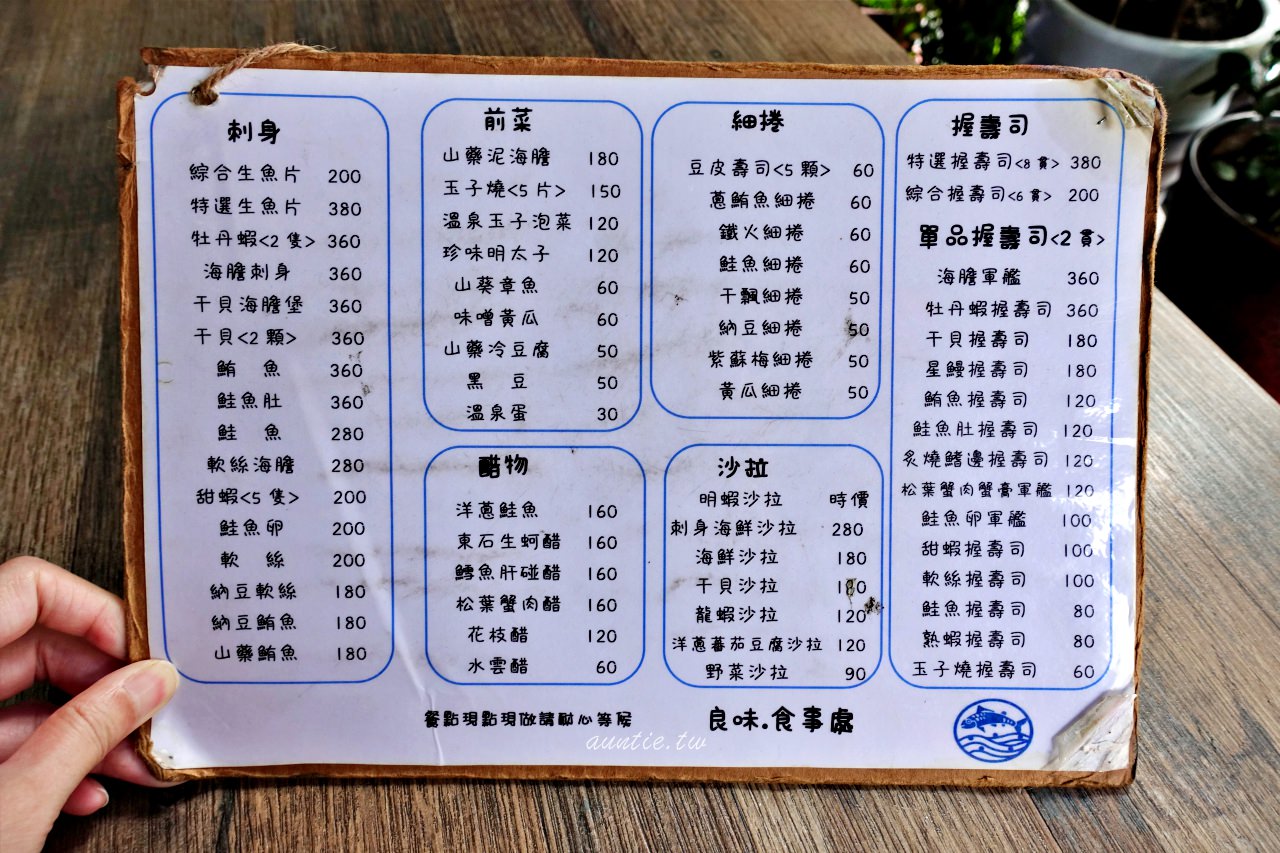 刺身
綜合生魚片 200
特選生魚片 380
牡丹蝦<2 隻> 360
海膽刺身 360
干貝海膽堡 360
干貝<2 顆> 360
鮪 魚 360
鮭魚肚 360
鮭 魚 280
軟絲海膽 280
甜蝦<5 隻> 200
鮭魚卵 200
軟 絲 200
納豆軟絲 180
納豆鮪魚 180
山藥鮪魚 180
前菜
山藥泥海膽 180
玉子燒<5 片> 150
溫泉玉子泡菜 120
珍味明太子 120
山葵章魚 60
味噌黃瓜 60
山藥冷豆腐 50
黑 豆 50
溫泉蛋 30
醋物
洋蔥鮭魚 160
東石生蚵醋 160
鱈魚肝碰醋 160
松葉蟹肉醋 160
花枝醋 120
水雲醋 60
細捲
豆皮壽司<5 顆> 60
蔥鮪魚細捲 60
鐵火細捲 60
鮭魚細捲 60
干瓢細捲 50
納豆細捲 50
紫蘇梅細捲 50
黃瓜細捲 50
沙拉
明蝦沙拉 時價
刺身海鮮沙拉 280
海鮮沙拉 180
干貝沙拉
龍蝦沙拉 120
洋蔥蕃茄豆腐沙拉 120
野菜沙拉 90
握壽司
特選握壽司<8 貫> 380
綜合握壽司<6 貫> 200
單品握壽司<2 貫>
海膽軍艦 360
牡丹蝦握壽司 360
干貝握壽司 180
星鰻握壽司 180
鮪魚握壽司 120
鮭魚肚握壽司 120
炙燒鰭邊握壽司 120
松葉蟹肉蟹膏軍艦 120
鮭魚卵軍艦 100
甜蝦握壽司 100
軟絲握壽司 100
鮭魚握壽司 80
熟蝦握壽司 80
玉子燒握壽司 60
餐點現點現做請耐心等候
良味.食事處
auntie.tw